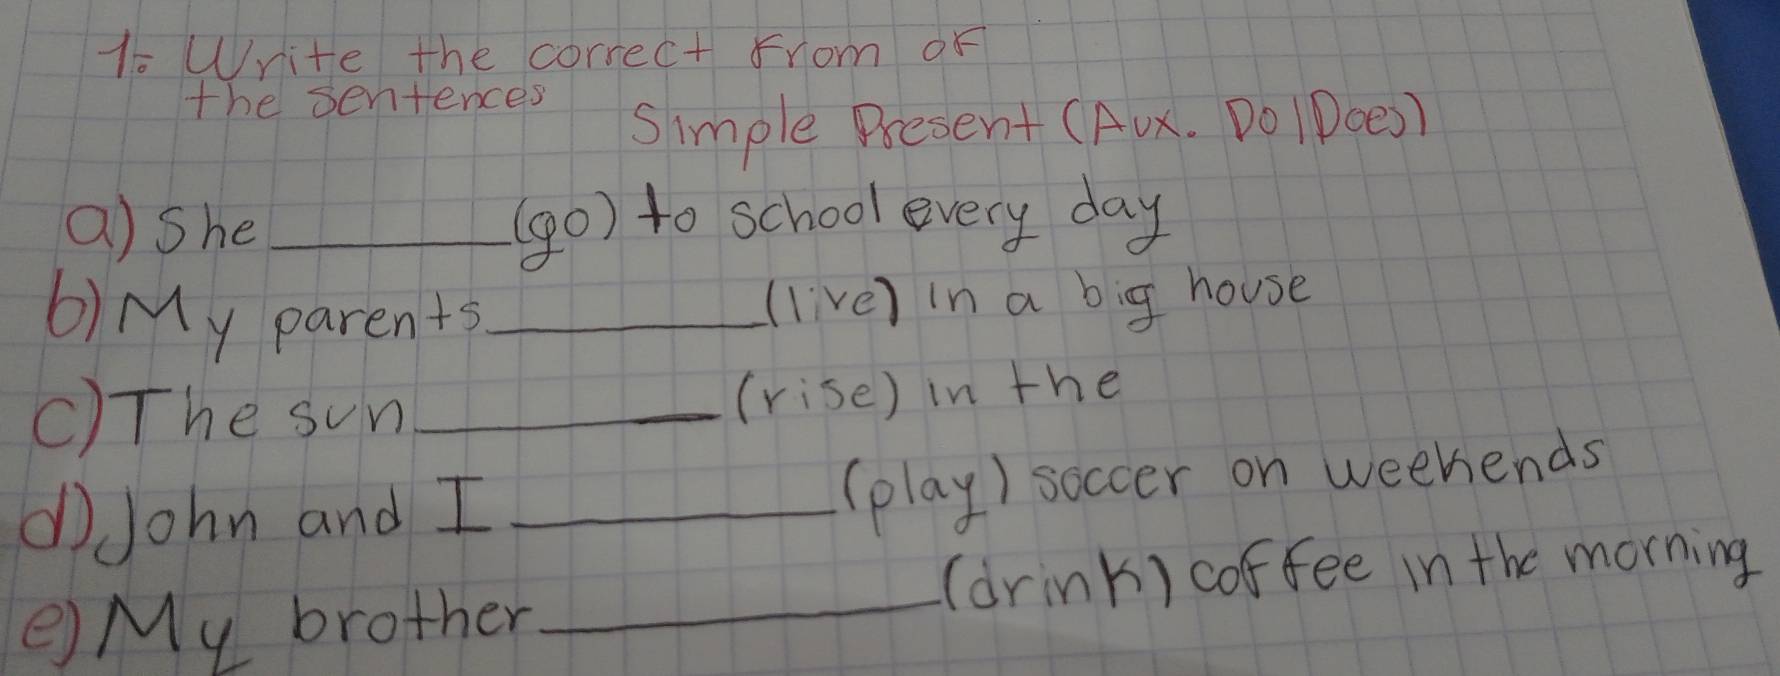 1. Write the correct From of
the sentences
Simple Present (Aux. Do/Does)
a) She ________ (go) to school every day
b) My parents ________ (live) in a big house
c) The sun ________ (rise) in the
d) John and I ________ (play) soccer on weekends
e) My brother ________ (drink) coffee in the morning